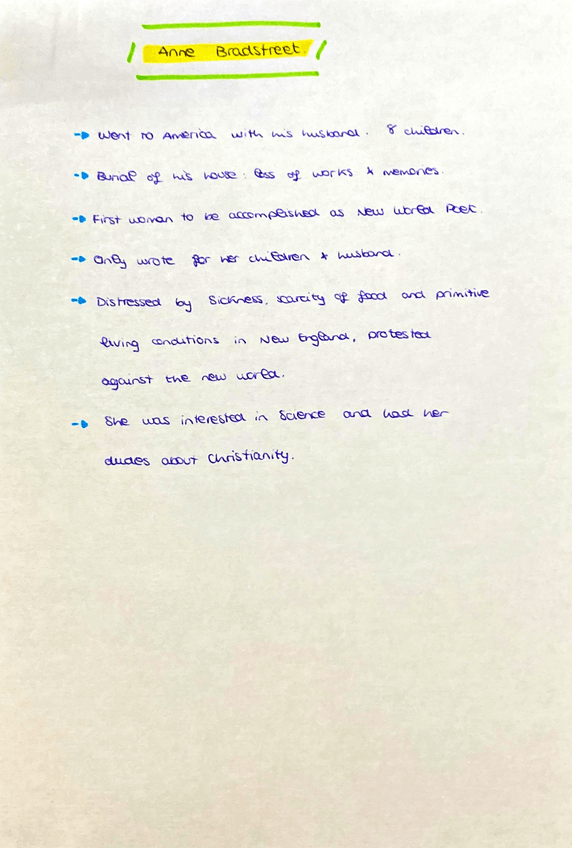 Anne Bradstreet.
Went to America with his husband. 8 children.
Burial of his house: loss of works & memories.
First woman to be accomplished as New World Poet.
Only wrote for her children & husband.
Distressed by Sickness, scarcity of food and primitive
living conditions in New England, protested
against the new world.
She was interested in Science and had her
dudes about Christianity.